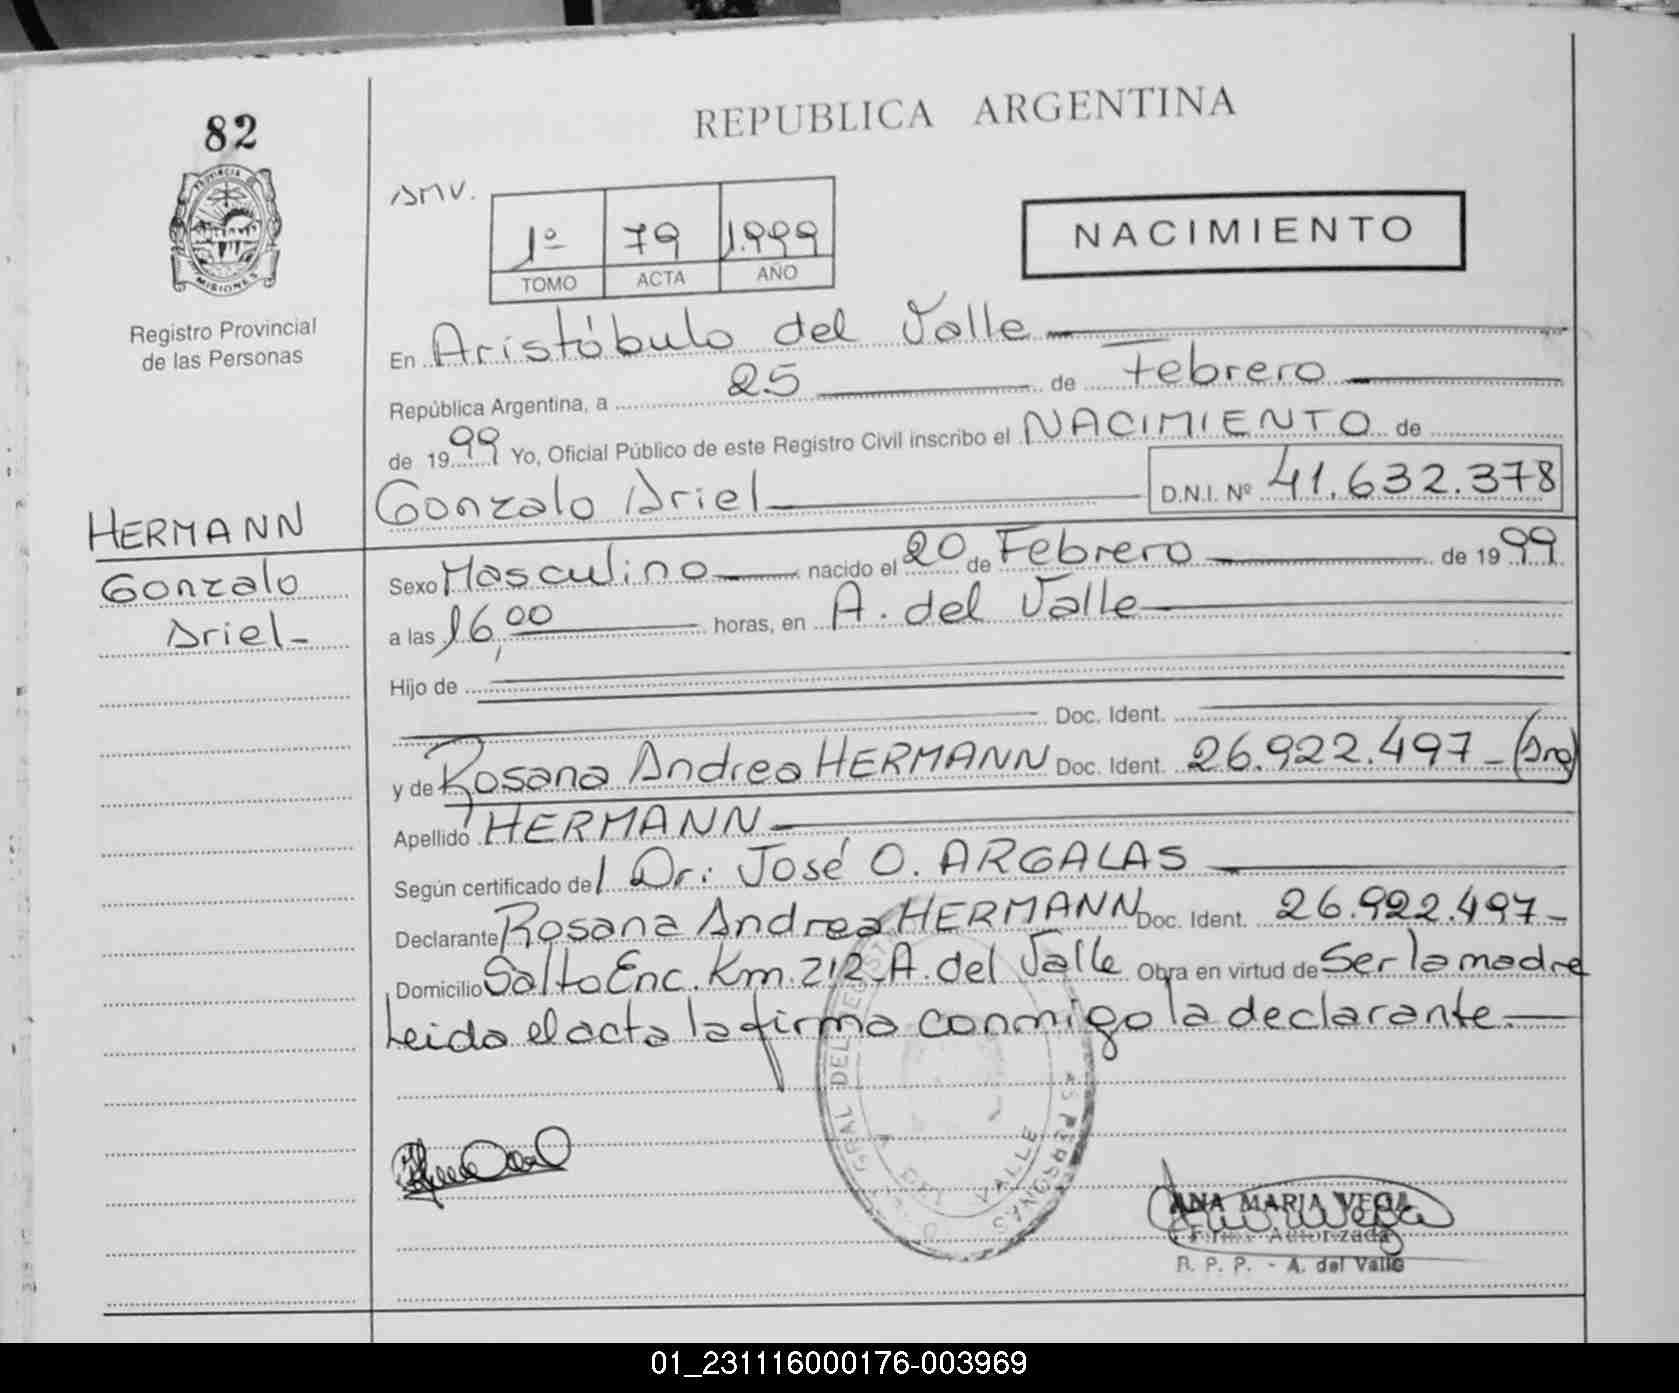 82
REPUBLICA ARGENTINA
PROVINCIA
MISIONES
Registro Provincial
de las Personas
AMV.
1º 79 1.999
TOMO ACTA AÑO
NACIMIENTO
En Aristóbulo del Valle
República Argentina, a 25 de Febrero
de 1999 Yo, Oficial Público de este Registro Civil inscribo el NACIMIENTO de
Gonzalo Ariel D.N.I. Nº 41.632.378
HERMANN
Gonzalo
Ariel-
Sexo Masculino nacido el 20 de Febrero de 1999
a las 16,00 horas, en A. del Valle
Hijo de
Doc. Ident.
y de Rosana Andrea HERMANN Doc. Ident. 26.922.497-(Arg)
Apellido HERMANN
Según certificado del Dr: José O. ARGALAS
Declarante Rosana Andrea HERMANN Doc. Ident. 26.922.497-
Domicilio Salto Enc. Km. 212 A. del Valle Obra en virtud de Ser la madre
Leida el acta la firma conmigo la declarante.-
GRAL DEL REGISTRO
AS PERSONAS
DEL VALLE
ANA MARIA VEGA
Firma Autorizada
R. P. P. - A. del Valle
01_231116000176-003969